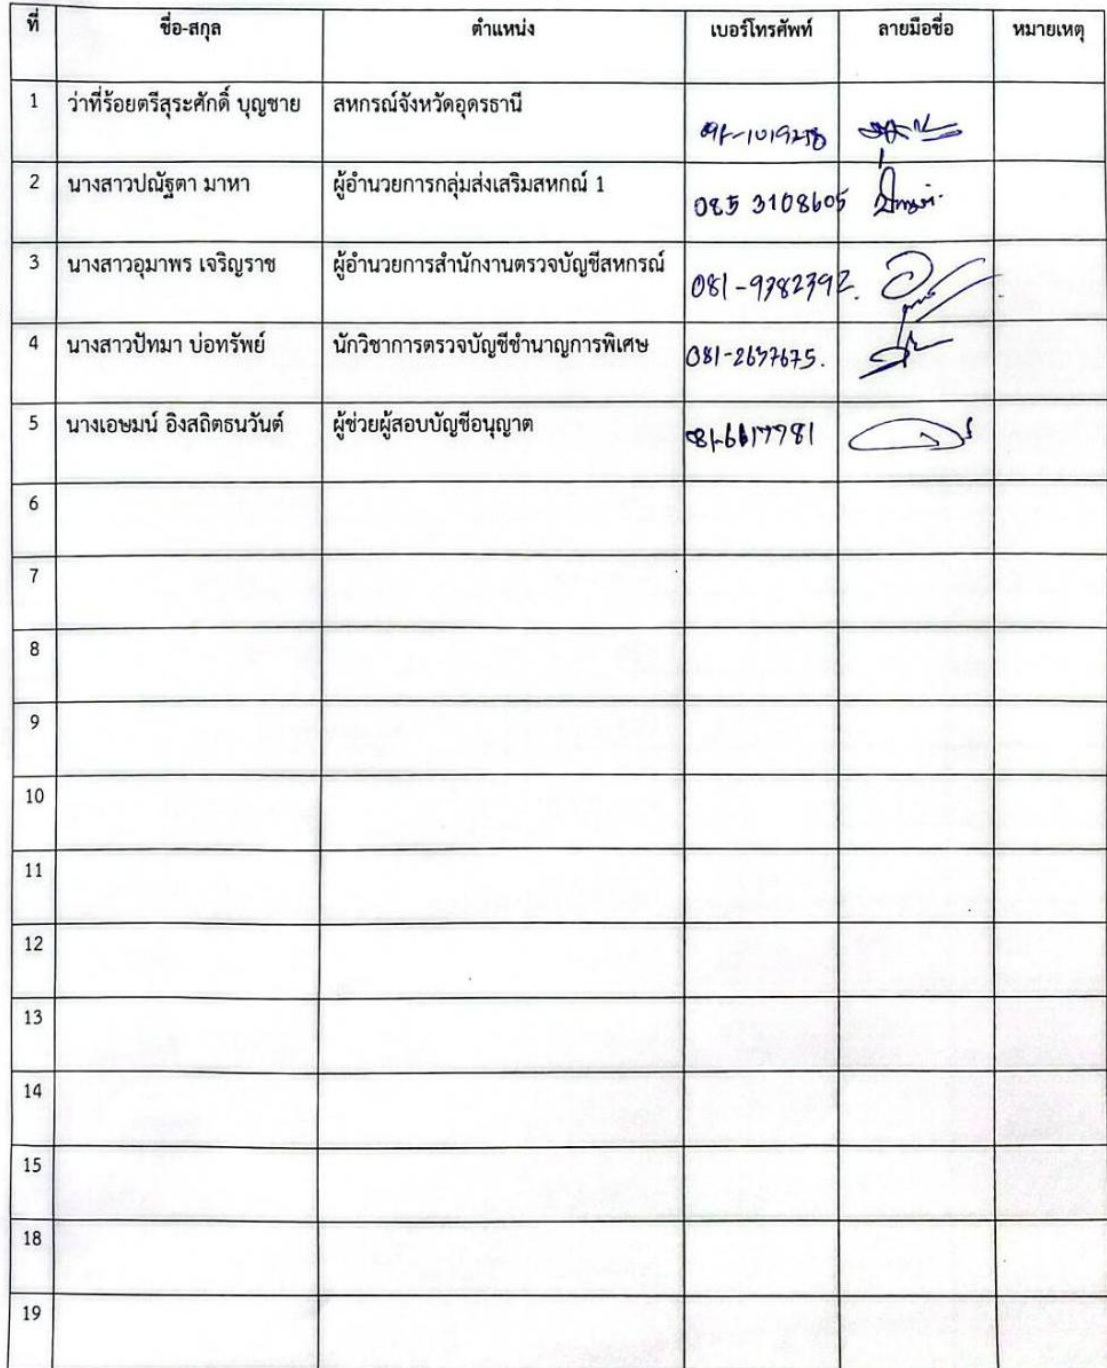 ที่ ชื่อ-สกุล ตำแหน่ง เบอร์โทรศัพท์ ลายมือชื่อ หมายเหตุ
1 ว่าที่ร้อยตรีสุระศักดิ์ บุญชาย สหกรณ์จังหวัดอุดรธานี
2 นางสาวปณัฐตา มาหา ผู้อำนวยการกลุ่มส่งเสริมสหกณ์ 1 085 3108605
3 นางสาวอุมาพร เจริญราช ผู้อำนวยการสำนักงานตรวจบัญชีสหกรณ์ 081-9382392.
4 นางสาวปัทมา บ่อทรัพย์ นักวิชาการตรวจบัญชีชำนาญการพิเศษ 081-2637675.
5 นางเอษมน์ อิงสถิตธนวันต์ ผู้ช่วยผู้สอบบัญชีอนุญาต
6
7
8
9
10
11
12
13
14
15
18
19